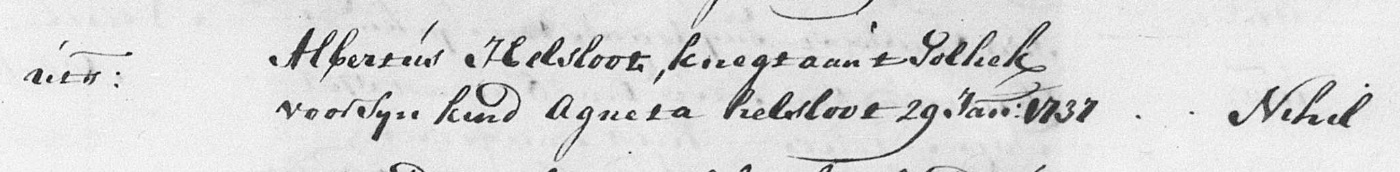 utr: Albertús Helsloot, knegt aan't Tolhek
voor Syn kind Agneta helsloot 29 Jan: 1737 . . Nihil